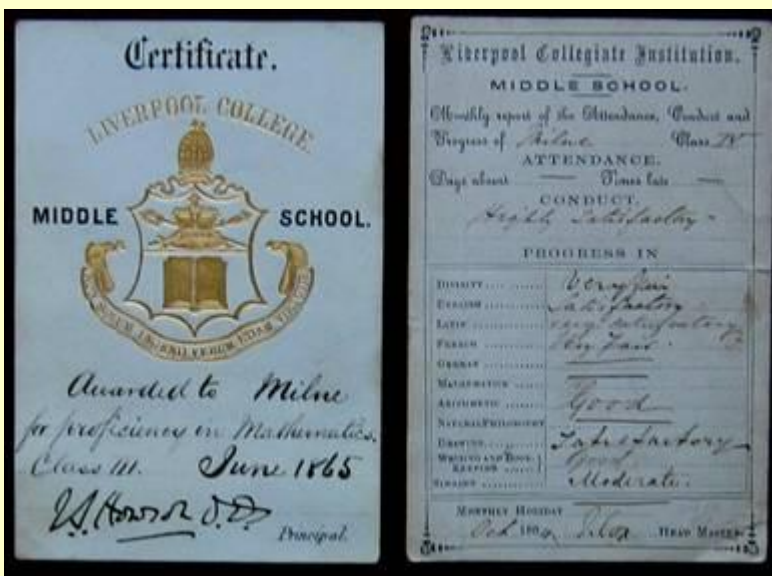 Certificate.
LIVERPOOL COLLEGE
MIDDLE SCHOOL.
Awarded to Milne
for proficiency in Mathematics.
Class III. June 1865
J.S. Howson D.D.
Principal.
Liverpool Collegiate Institution.
MIDDLE SCHOOL.
Monthly report of the Attendance, Conduct and
Progress of Milne Class IV
ATTENDANCE.
Days absent — Times late —
CONDUCT.
Highly Satisfactory
PROGRESS IN
DIVINITY Very fair
ENGLISH Satisfactory
LATIN very satisfactory
FRENCH Very Fair.
GERMAN
MATHEMATICS
ARITHMETIC Good
NATURAL PHILOSOPHY
DRAWING Satisfactory
WRITING AND BOOK- Good
KEEPING
SINGING Moderate.
MONTHLY HOLIDAY
Oct 186 HEAD MASTER